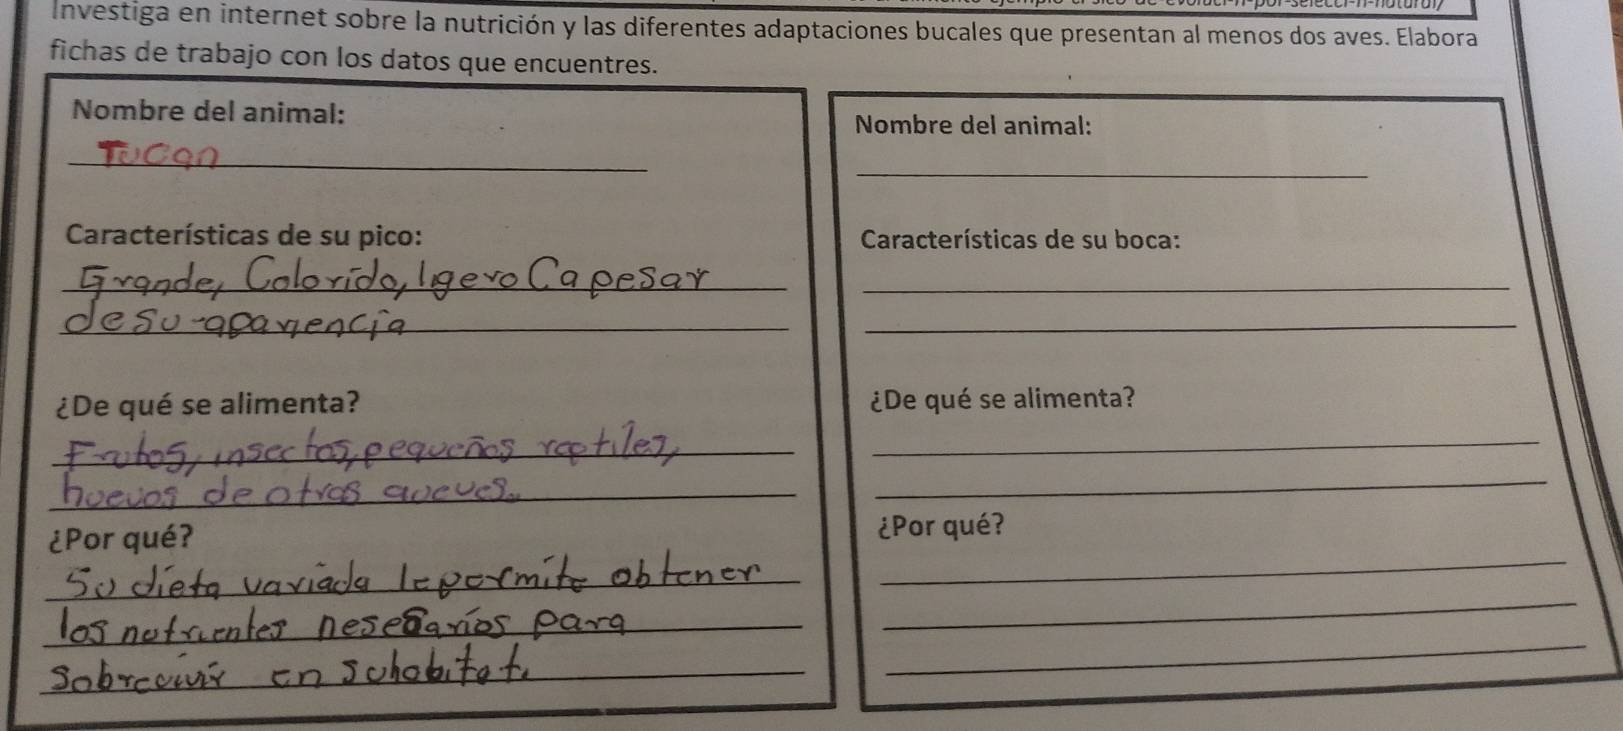 Investiga en internet sobre la nutrición y las diferentes adaptaciones bucales que presentan al menos dos aves. Elabora
fichas de trabajo con los datos que encuentres.
Nombre del animal:
Tucan
Características de su pico:
Grande, Colorido, ligero Ca pesar
de su apariencia
¿De qué se alimenta?
Frutos, insectos, pequeños reptiles,
huevos de otras aueves.
¿Por qué?
Su dieta variada le permite obtener
los nutrientes nesesarios para
Sobrevivir en su habitat.
Nombre del animal:
Características de su boca:
¿De qué se alimenta?
¿Por qué?